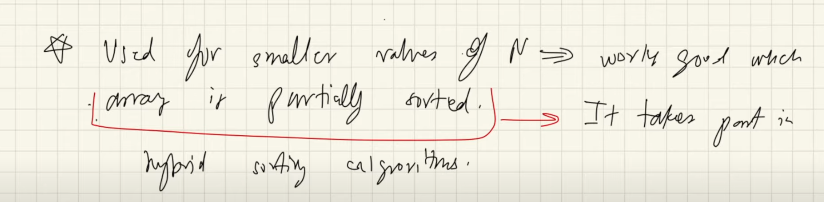 ☆ Used for smaller values of N ⇒ works good when
array is partially sorted. → It takes part in
hybrid sorting algorithms.